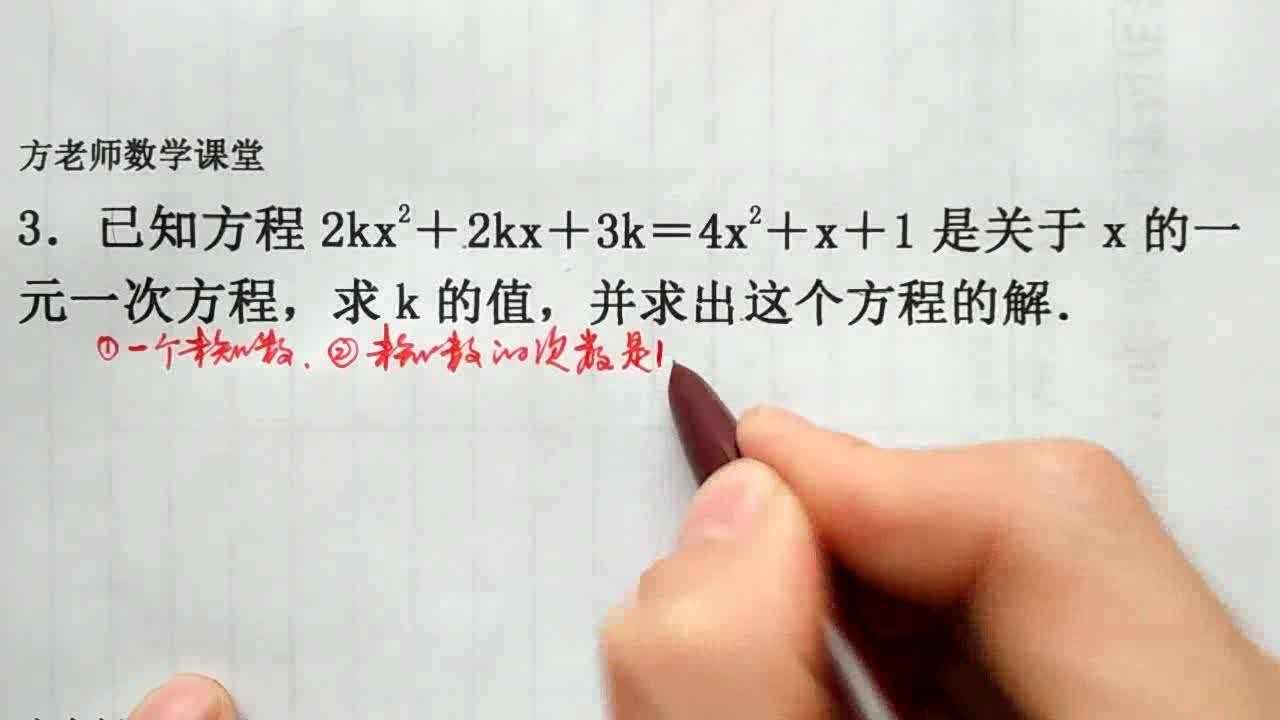 方老师数学课堂
3. 已知方程 2kx²＋2kx＋3k＝4x²＋x＋1 是关于 x 的一
元一次方程，求 k 的值，并求出这个方程的解．
①一个未知数. ②未知数的次数是1